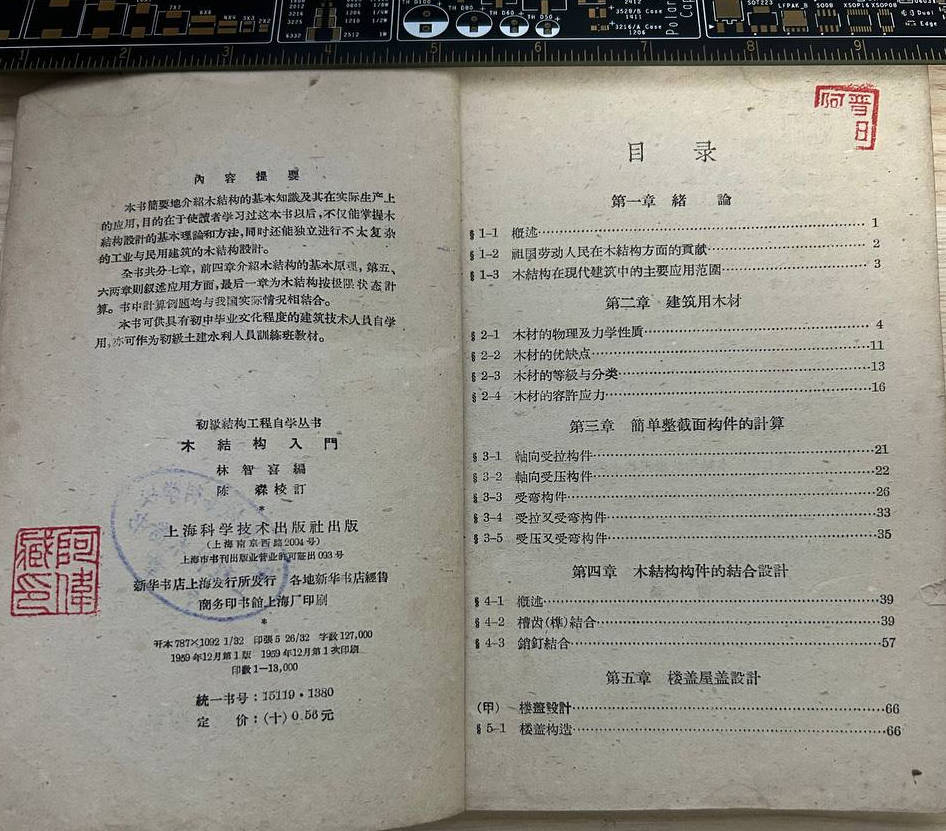 TH D100
TH D80
TH D60
TH D50
7x7
5x5
4x4
3x3
3x2
0201
1/20W
0603
1/10W
1/8W
6332
2512
1W
2412
3528/B Case
3216/A Case
1206
SOT223
LFPAK_8
SO08
XSOP16
1 2 3 4 5 6 7 8 9
內容提要
本书簡要地介紹木結构的基本知識及其在实际生产上
的应用，目的在于使讀者学习过这本书以后，不仅能掌握木
結构設計的基本理論和方法，同时还能独立进行不太复杂
的工业与民用建筑的木結构設計。
全书共分七章，前四章介紹木結构的基本原理，第五、
六两章则叙述应用方面，最后一章为木結构按极限状态計
算。书中計算例題均与我国实际情况相結合。
本书可供具有初中毕业文化程度的建筑技术人員自学
用，亦可作为初級土建水利人員訓練班教材。
初級結构工程自学丛书
木結构入門
林智喜編
陈森校訂
*
上海科学技术出版社出版
（上海南京西路2004号）
上海市书刊出版业营业許可証出093号
新华书店上海发行所发行 各地新华书店經售
商务印书館上海厂印刷
*
开本787×1092 1/32 印張5 26/32 字数127,000
1959年12月第1版 1959年12月第1次印刷
印数1—13,000
統一书号：15119·1380
定 价：（十）0.56元
阿偉
藏印
晋日
阿
目录
第一章 緒 論
§1-1 概述 1
§1-2 祖国劳动人民在木結构方面的貢献 2
§1-3 木結构在現代建筑中的主要应用范圍 3
第二章 建筑用木材
§2-1 木材的物理及力学性质 4
§2-2 木材的优缺点 11
§2-3 木材的等級与分类 13
§2-4 木材的容許应力 16
第三章 簡单整截面构件的計算
§3-1 軸向受拉构件 21
§3-2 軸向受压构件 22
§3-3 受弯构件 26
§3-4 受拉又受弯构件 33
§3-5 受压又受弯构件 35
第四章 木結构构件的結合設計
§4-1 概述 39
§4-2 槽齿(榫)結合 39
§4-3 銷釘結合 57
第五章 楼盖屋盖設計
（甲） 楼盖設計 66
§5-1 楼盖构造 66